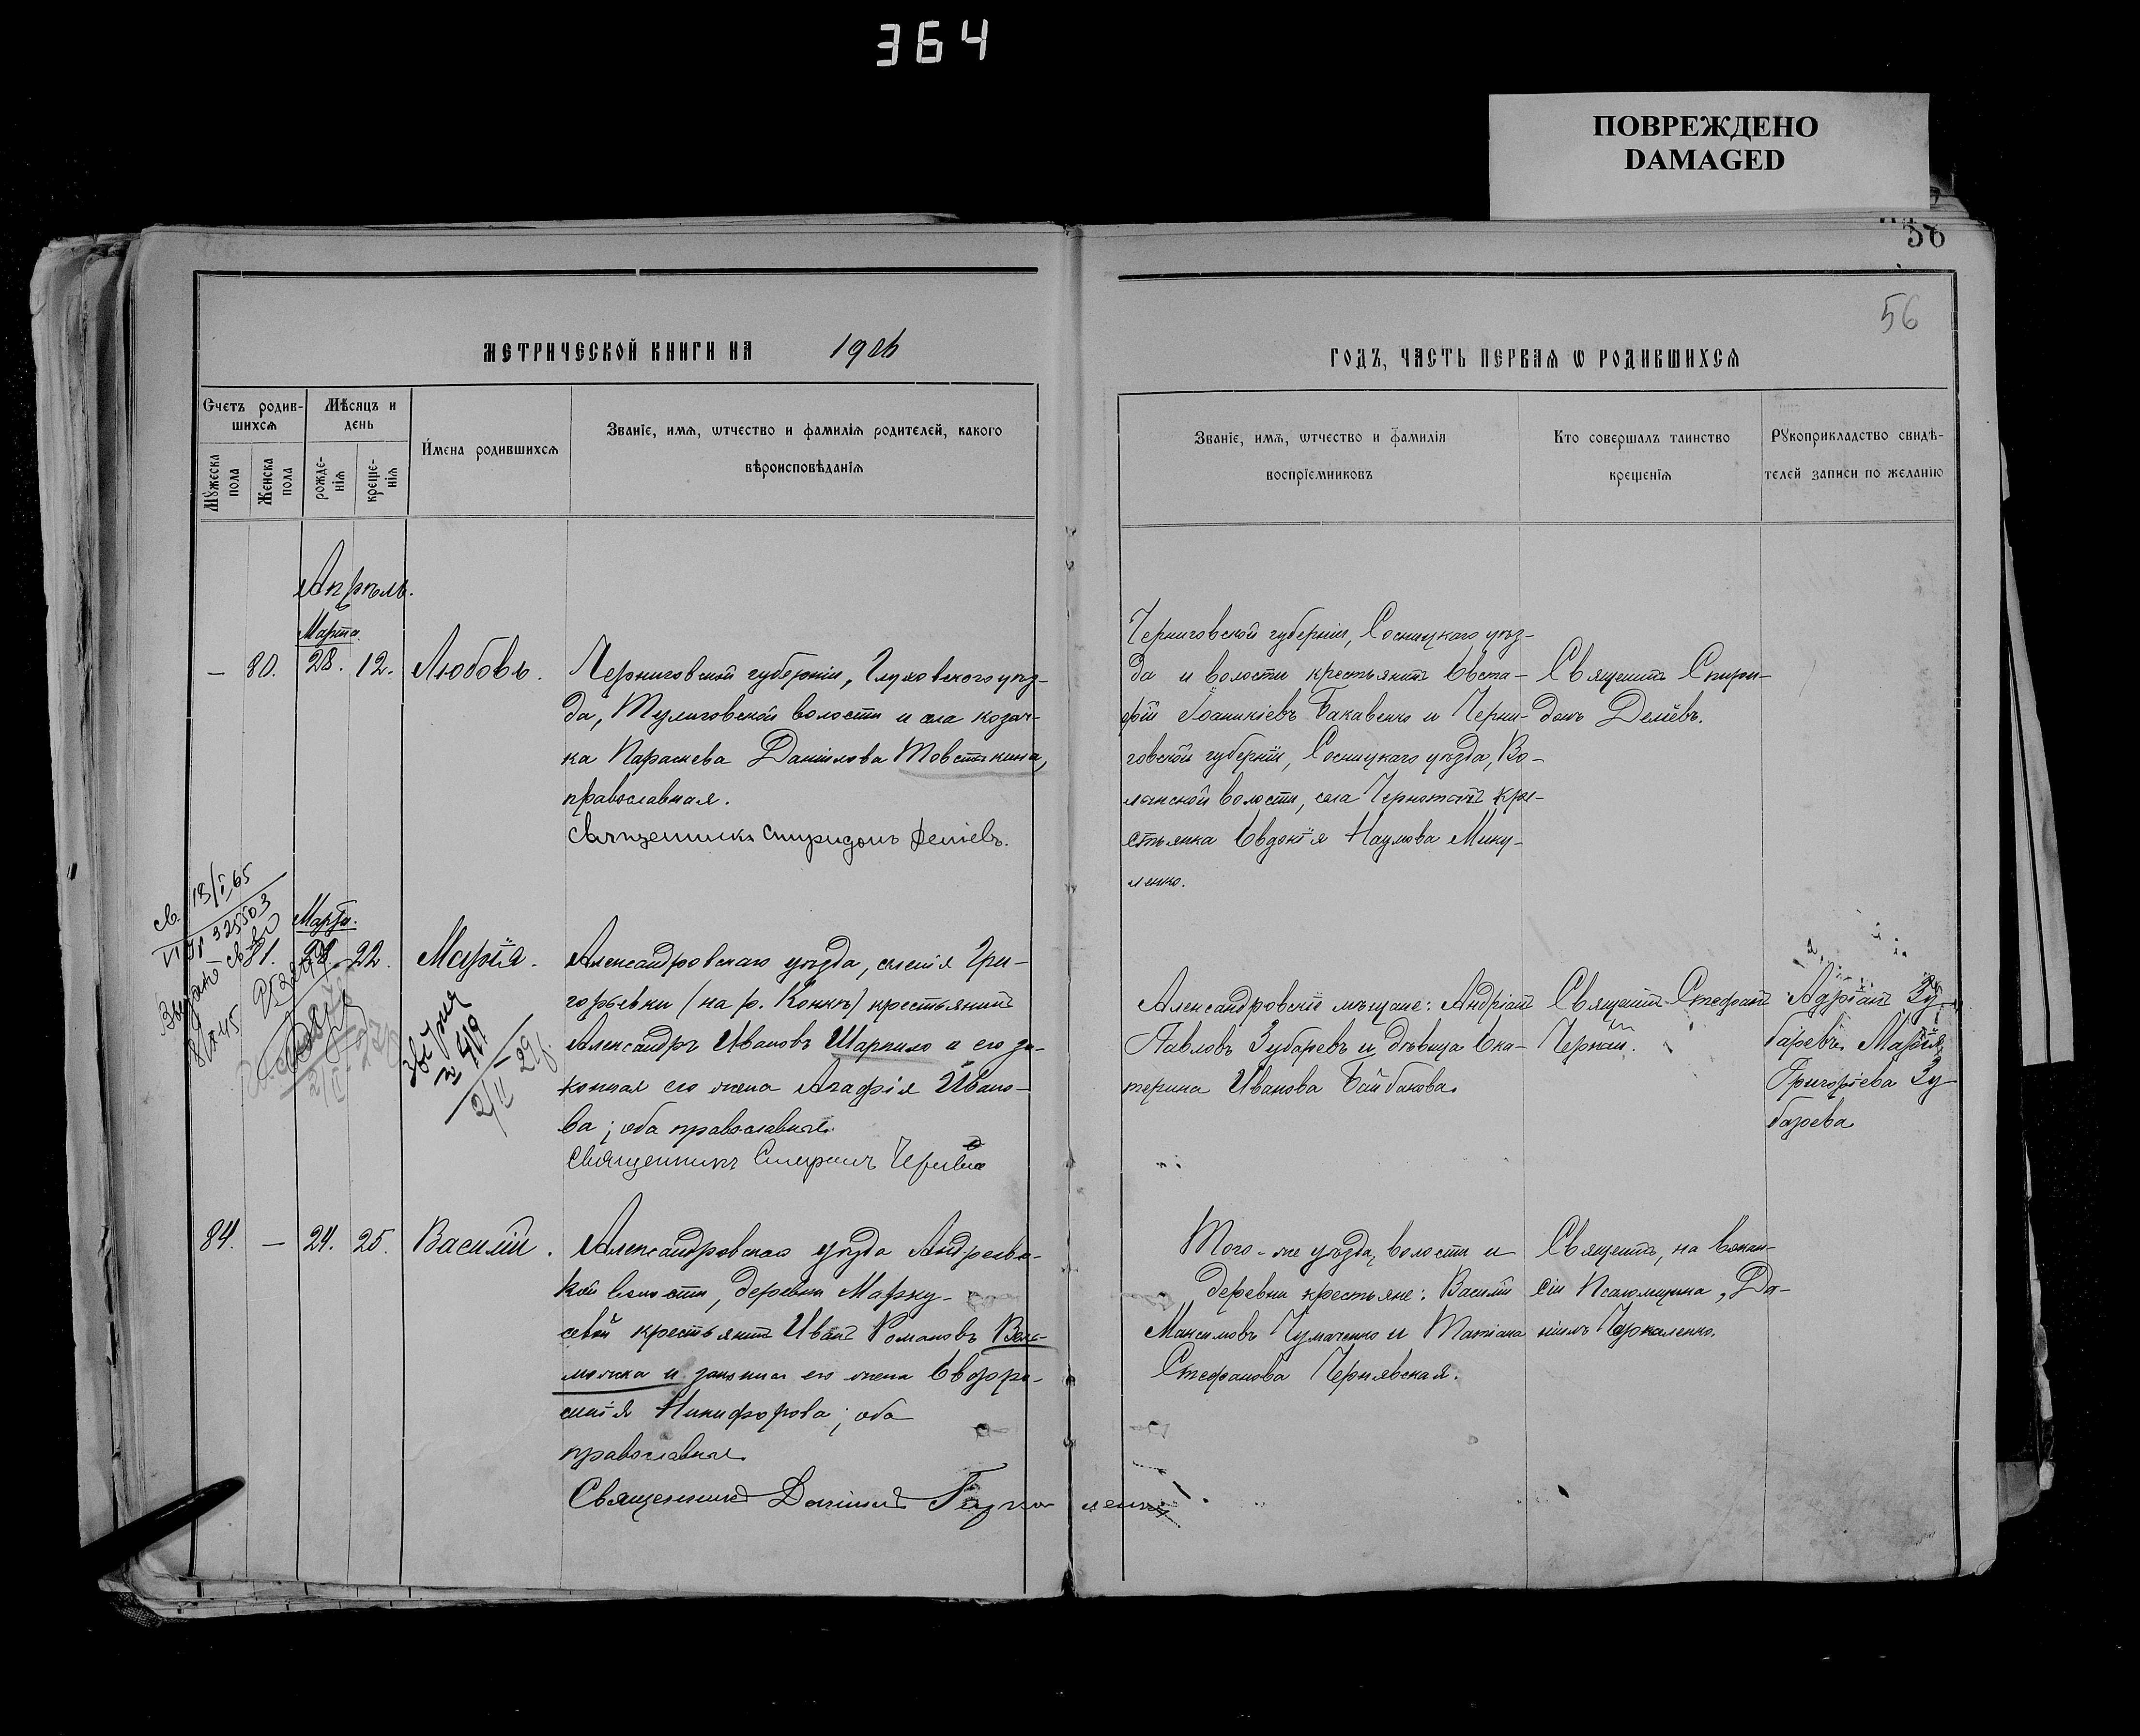 364
ПОВРЕЖДЕНО
DAMAGED
56
56
МЕТРИЧЕСКОЙ КНИГИ НА 1906
ГОДЪ, ЧАСТЬ ПЕРВАѦ Ѡ РОДИВШИХСѦ
Счетъ родив-
шихсѧ
Мѣсяцъ и
день
Мужеска
пола
Женска
пола
рожде-
нія
креще-
нія
Имена родившихсѧ
Званіе, имѧ, ѡтчество и фамилія родителей, какого
вѣроисповѣданія
Званіе, имѧ, ѡтчество и фамилія
воспріемниковъ
Кто совершалъ таинство
крещенія
Рукоприкладство свидѣ-
телей записи по желанію
Апрѣль.
Марта.
— 80. 28. 12. Любовь.
Черниговской губерніи, Глуховского уѣз-
да, Тулиговской волости и села козач-
ка Параскева Даніилова Товстикина,
православная.
Священникъ Спиридонъ Деліевъ.
Черниговской губерніи, Сосницкаго уѣз-
да и волости крестьянинъ Евста-
фій Іоанникіевъ Бакавенко и Черни-
говской губерніи, Сосницкаго уѣзда, Во-
лынской волости, села крe-
стьянка Евдокія Наумова Мику-
ленко.
Священникъ Спири-
донъ Деліевъ.
св. 18/I 65
VI ЯР 325503
Марта.
81. 22. Марія.
Александровскаго уѣзда, селенія Гри-
горьевки (на р. Конкѣ) крестьянинъ
Александръ Ивановъ Шарпило и его за-
конная его жена Агафія Ивано-
ва; оба православные.
Священникъ Стефанъ
№ 419
2/II 29 г.
Александровскіе мѣщане: Андріанъ
Павловъ Зубаревъ и дѣвица Ека-
терина Иванова Байбакова.
Священникъ Стефанъ
Адріанъ Зу-
баревъ. Марія
Григорьева Зу-
барева
84. — 24. 25. Василій.
Александровскаго уѣзда Андреевс-
кой волости, деревни Марку-
севой крестьянинъ Иванъ Романовъ
и законная его жена Евфро-
синія Никифорова; оба
православные.
Священникъ Даніилъ
Того-же уѣзда, волости и
деревни крестьяне: Василій
Максимовъ Чумаченко и Татіана
Стефанова Чернявская.
Священникъ, на вакан-
сіи Псаломщика, Да-
ніилъ